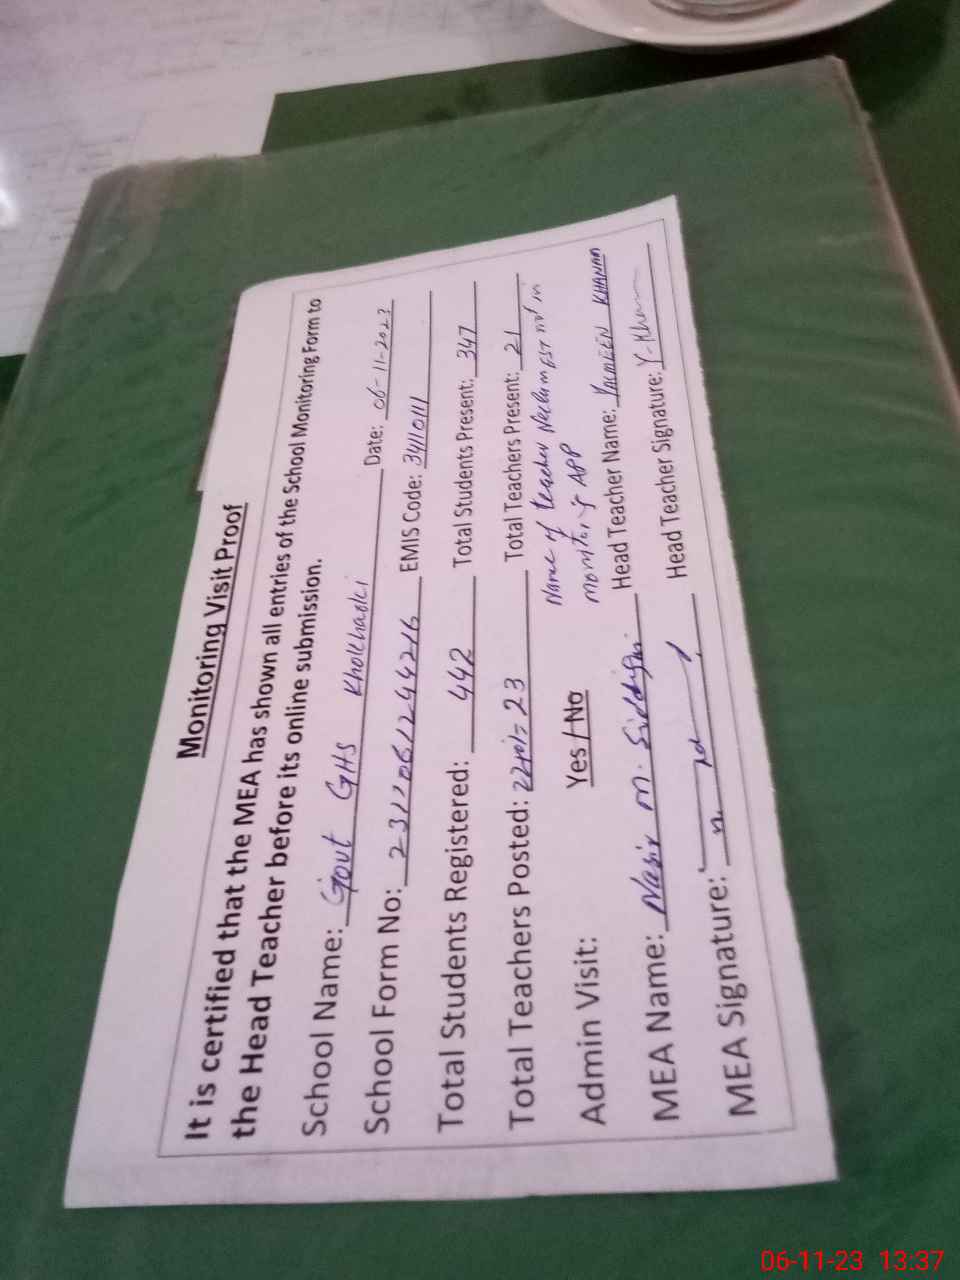 Monitoring Visit Proof
It is certified that the MEA has shown all entries of the School Monitoring Form to
the Head Teacher before its online submission.
School Name: Govt GHS Kholkhaski Date: 06-11-2023
School Form No: 2311061244216 EMIS Code: 34110111
Total Students Registered: 442 Total Students Present: 347
Total Teachers Posted: 22+01= 23 Total Teachers Present: 21
Name of teacher Neelam EST not in
monitoring APP
Admin Visit: Yes / No
MEA Name: Nasir M. Siddiqui Head Teacher Name: YASMEEN KHANAM
MEA Signature: Head Teacher Signature: Y-Khan
06-11-23 13:37